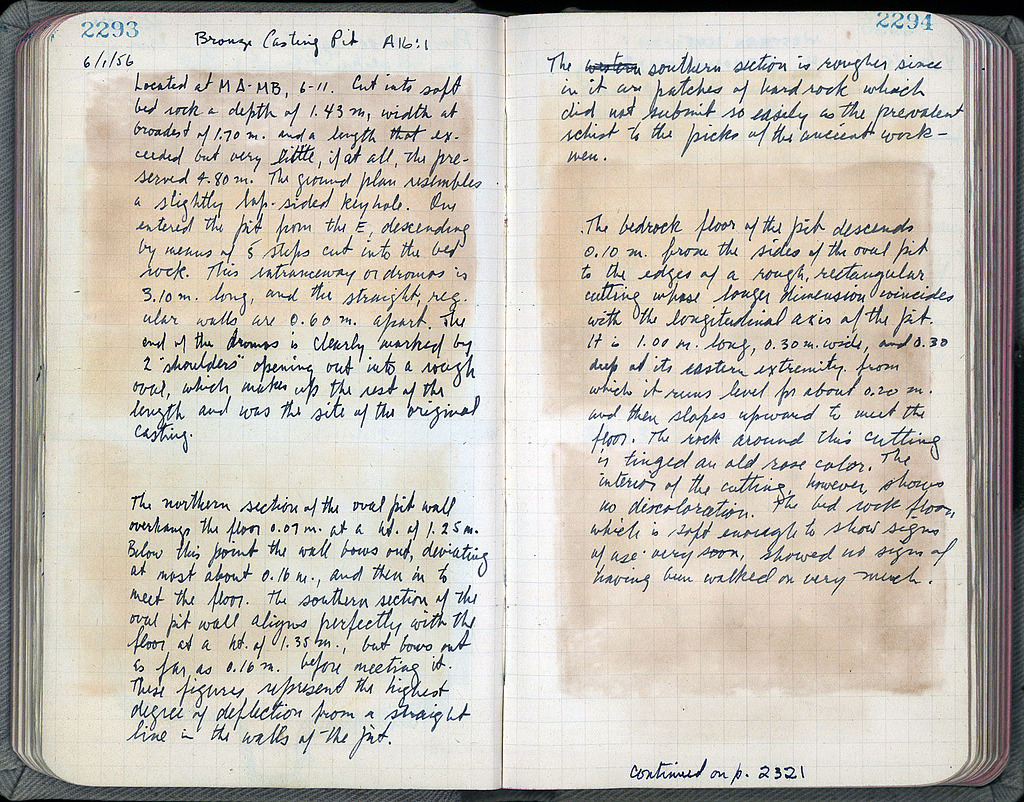 2293
Bronze Casting Pit A16:1
6/1/56
Located at MA-MB, 6-11. Cut into soft
bed rock a depth of 1.43 m, width at
broadest of 1.70 m. and a length that ex-
ceeded but very little, if at all, the pre-
served 4.80 m. The ground plan resembles
a slightly lop-sided keyhole. One
entered the pit from the E, descending
by means of 5 steps cut into the bed
rock. This entranceway or dromos is
3.10 m. long, and the straight, reg-
ular walls are 0.60 m. apart. The
end of the dromos is clearly marked by
2 "shoulders" opening out into a rough
oval, which makes up the rest of the
length and was the site of the original
casting.
The northern section of the oval pit wall
overhangs the floor 0.07 m. at a ht. of 1.25 m.
Below this point the wall bows out, deviating
at most about 0.16 m., and then in to
meet the floor. The southern section of the
oval pit wall aligns perfectly with the
floor at a ht. of 1.35 m., but bows out
as far as 0.16 m. before meeting it.
These figures represent the highest
degree of deflection from a straight
line in the walls of the pit.
2294
The western southern section is rougher since
in it are patches of hard rock which
did not submit so easily as the prevalent
schist to the picks of the ancient work-
men.
The bedrock floor of the pit descends
0.10 m. from the sides of the oval pit
to the edges of a rough, rectangular
cutting whose longer dimension coincides
with the longitudinal axis of the pit.
It is 1.00 m. long, 0.30 m. wide, and 0.30
deep at its eastern extremity from
which it runs level for about 0.20 m.
and then slopes upward to meet the
floor. The rock around this cutting
is tinged an old rose color. The
interior of the cutting, however, shows
no discoloration. The bed rock floor,
which is soft enough to show signs
of use very soon, showed no signs of
having been walked on very much.
continued on p. 2321